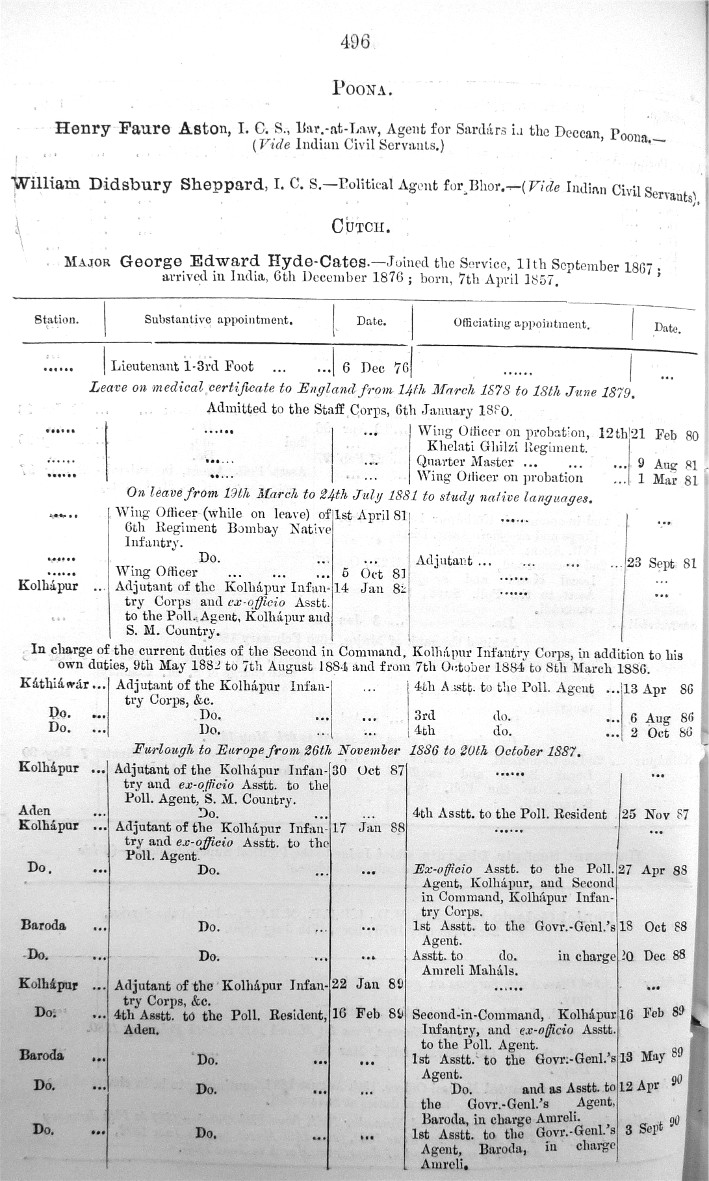 496
POONA.
Henry Faure Aston, I. C. S., Bar.-at-Law, Agent for Sardárs in the Deccan, Poona.—
(Vide Indian Civil Servants.)
William Didsbury Sheppard, I. C. S.—Political Agent for Bhor.—(Vide Indian Civil Servants),
CUTCH.
MAJOR George Edward Hyde-Cates.—Joined the Service, 11th September 1867;
arrived in India, 6th December 1876; born, 7th April 1857.
Station. Substantive appointment. Date. Officiating appointment. Date.
...... Lieutenant 1-3rd Foot ... ... 6 Dec 76 ...... ...
Leave on medical certificate to England from 14th March 1878 to 18th June 1879.
Admitted to the Staff Corps, 6th January 1880.
...... ...... ... Wing Officer on probation, 12th 21 Feb 80
Khelati Ghilzi Regiment.
...... ...... ... Quarter Master ... ... ... 9 Aug 81
...... ...... ... Wing Officer on probation ... 1 Mar 81
On leave from 19th March to 24th July 1881 to study native languages.
...... Wing Officer (while on leave) of 1st April 81 ...... ...
6th Regiment Bombay Native
Infantry.
...... Do. ... ... Adjutant ... ... ... ... 23 Sept 81
...... Wing Officer ... ... ... 5 Oct 81 ...... ...
Kolhápur ... Adjutant of the Kolhápur Infan- 14 Jan 82 ...... ...
try Corps and ex-officio Asstt.
to the Poll. Agent, Kolhápur and
S. M. Country.
In charge of the current duties of the Second in Command, Kolhápur Infantry Corps, in addition to his
own duties, 9th May 1882 to 7th August 1884 and from 7th October 1884 to 8th March 1886.
Káthiáwár ... Adjutant of the Kolhápur Infan- ... 4th Asstt. to the Poll. Agent ... 13 Apr 86
try Corps, &c.
Do. ... Do. ... ... 3rd do. ... 6 Aug 86
Do. ... Do. ... ... 4th do. ... 2 Oct 86
Furlough to Europe from 26th November 1886 to 20th October 1887.
Kolhápur ... Adjutant of the Kolhápur Infan- 30 Oct 87 ...... ...
try and ex-officio Asstt. to the
Poll. Agent, S. M. Country.
Aden ... Do. ... ... 4th Asstt. to the Poll. Resident 25 Nov 87
Kolhápur ... Adjutant of the Kolhápur Infan- 17 Jan 88 ...... ...
try and ex-officio Asstt. to the
Poll. Agent.
Do. ... Do. ... ... Ex-officio Asstt. to the Poll. 27 Apr 88
Agent, Kolhápur, and Second
in Command, Kolhápur Infan-
try Corps.
Baroda ... Do. ... ... 1st Asstt. to the Govr.-Genl.'s 18 Oct 88
Agent.
Do. ... Do. ... ... Asstt. to do. in charge 20 Dec 88
Amreli Maháls.
Kolhápur ... Adjutant of the Kolhápur Infan- 22 Jan 89 ...... ...
try Corps, &c.
Do. ... 4th Asstt. to the Poll. Resident, 16 Feb 89 Second-in-Command, Kolhápur 16 Feb 89
Aden. Infantry, and ex-officio Asstt.
to the Poll. Agent.
Baroda ... Do. ... ... 1st Asstt. to the Govr.-Genl.'s 13 May 89
Agent.
Do. ... Do. ... ... Do. and as Asstt. to 12 Apr 90
the Govr.-Genl.'s Agent,
Baroda, in charge Amreli.
Do. ... Do. ... ... 1st Asstt. to the Govr.-Genl.'s 3 Sept 90
Agent, Baroda, in charge
Amreli.